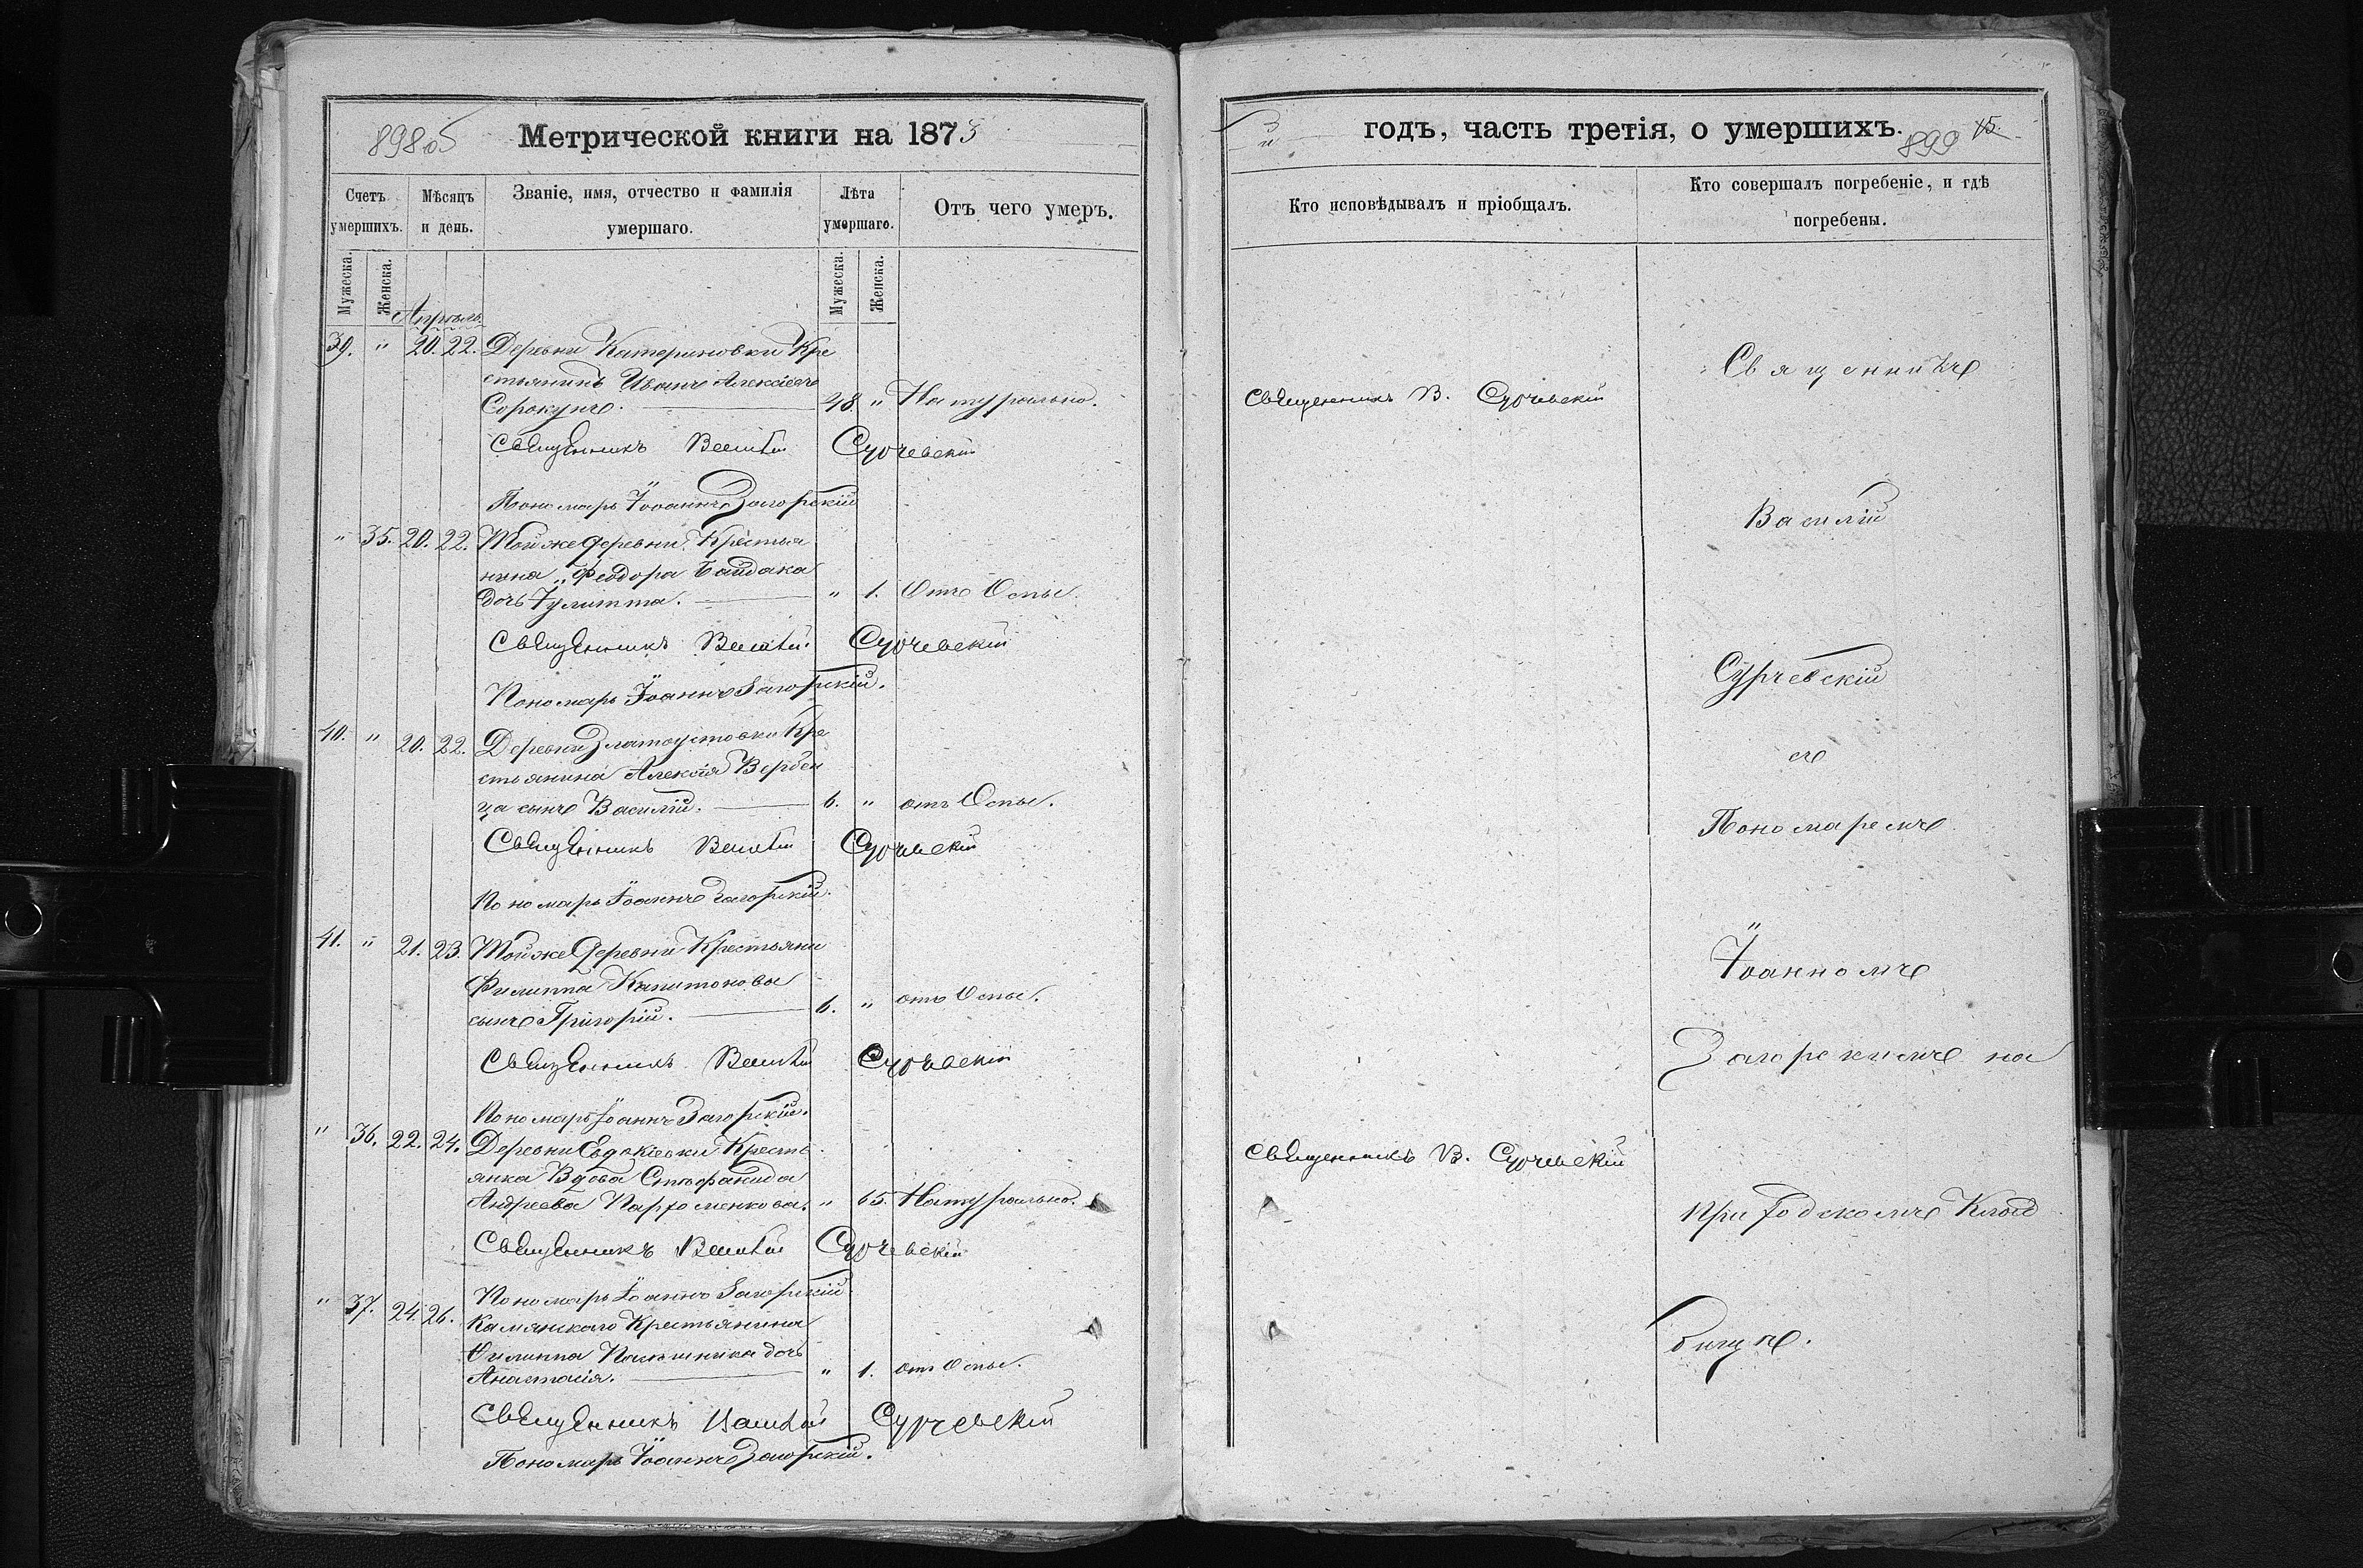 898об
Метрической книги на 1873
Счетъ умершихъ.
Мѣсяцъ и день.
Званіе, имя, отчество и фамилія умершаго.
Лѣта умершаго.
Отъ чего умеръ.
Мужеска.
Женска.
Мужеска.
Женска.
Апрѣль.
39. " 20. 22. Деревни Катериновки Кре
стьянинъ Иванъ Алексіевъ
Сорокунъ. 48. " Натурально.
Священникъ Василій Сурчевскій
Пономарь Іоаннъ Загорскій
" 35. 20. 22. Той же деревни Крестья
нина Феодора Байдака
дочь Іулитта. " 1. Отъ Оспы.
Священникъ Василій Сурчевскій
Пономарь Іоаннъ Загорскій.
40. " 20. 22. Деревни Златоустовки Кре
стьянина Алексія Вербен
ца сынъ Василій. 6. " отъ Оспы.
Священникъ Василій Сурчевскій
Пономарь Іоаннъ Загорскій.
41. " 21. 23. Той же Деревни Крестьяни
Филиппа Капитонова
сынъ Григорій. 6. " отъ Оспы.
Священникъ Василій Сурчевскій
Пономарь Іоаннъ Загорскій.
" 36. 22. 24. Деревни Евдокіевки Кресть
янка Вдова Стефанида
Андреева Пархоменкова. " 65. Натурально.
Священникъ Василій Сурчевскій
Пономарь Іоаннъ Загорскій
" 37. 24. 26. Камянскаго Крестьянина
Филиппа дочь
Анастасія. " 1. отъ Оспы.
Священникъ Василій Сурчевскій
Пономарь Іоаннъ Загорскій.
годъ, часть третія, о умершихъ.
899 15.
Кто исповѣдывалъ и пріобщалъ.
Кто совершалъ погребеніе, и гдѣ погребены.
Священникъ В. Сурчевскій
Священникъ В. Сурчевскій
Священникъ
Василій
Сурчевскій
съ
Пономаремъ
Іоанномъ
Загорскимъ на
приходскомъ Клад
бищѣ.